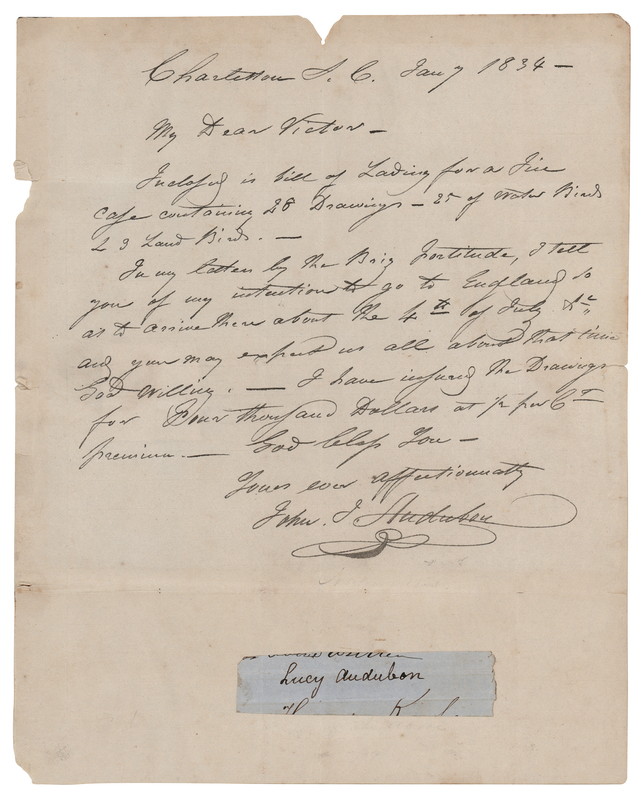 Charleston S. C. Jany 1834 —
My Dear Victor —
Inclosed is bill of Lading for a Tin
case containing 28 Drawings — 25 of Water Birds
& 3 Land Birds. —
In my letter by the Brig Fortitude, I tell
you of my intention to go to England so
as to arrive there about the 4th of July &c
and you may expect us all about that time
God Willing. — I have insured the Drawings
for Four thousand Dollars at ½ per Ct
premium. — God bless You —
Yours ever affectionnatly
John. J. Audubon
Lucy Audubon